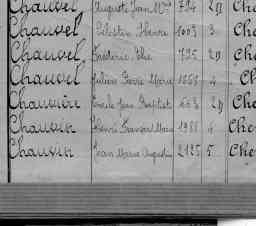 Chauvel, Auguste Jean M 794 2D Cha
Chauvel Célestin Henri 1003 3 Cha
Chauvel, Frédéric Elie 795 2D Cha
Chauvel Pierre Marie 1668 4 Ch
Chauvière Emile Jean Baptiste 2D Che
Chauvin Henri François Marie 1988 4 Che
Chauvin Jean Marie Augustin 2125 5 Che